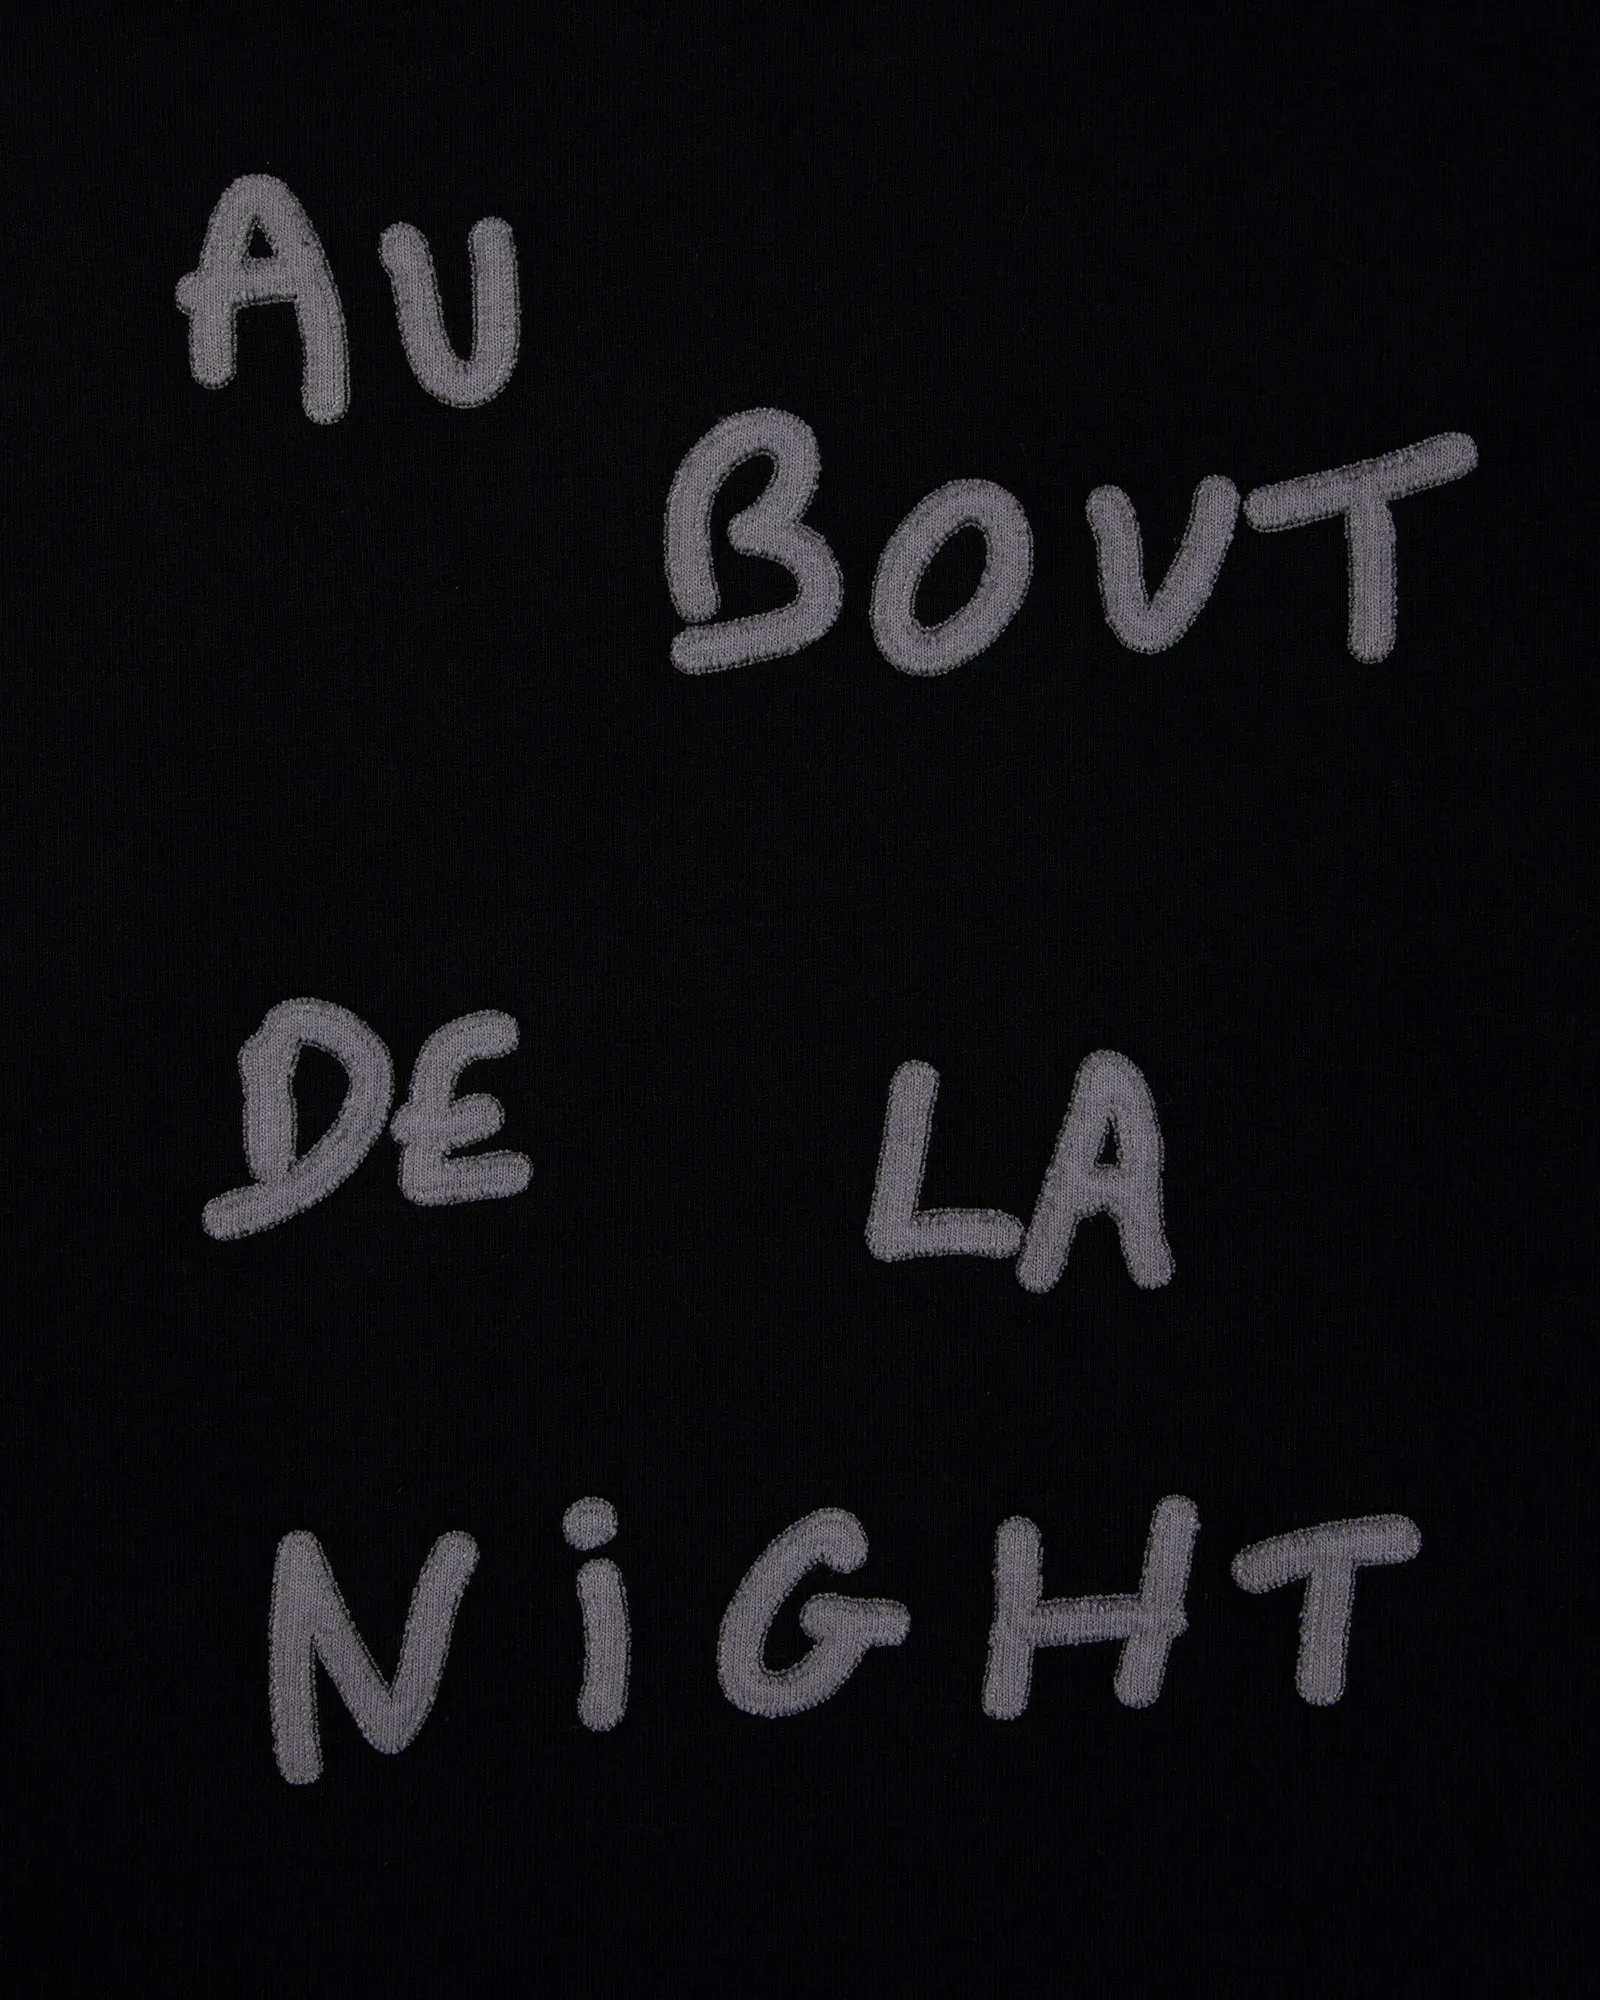 AU
BOUT
DE LA
NiGHT